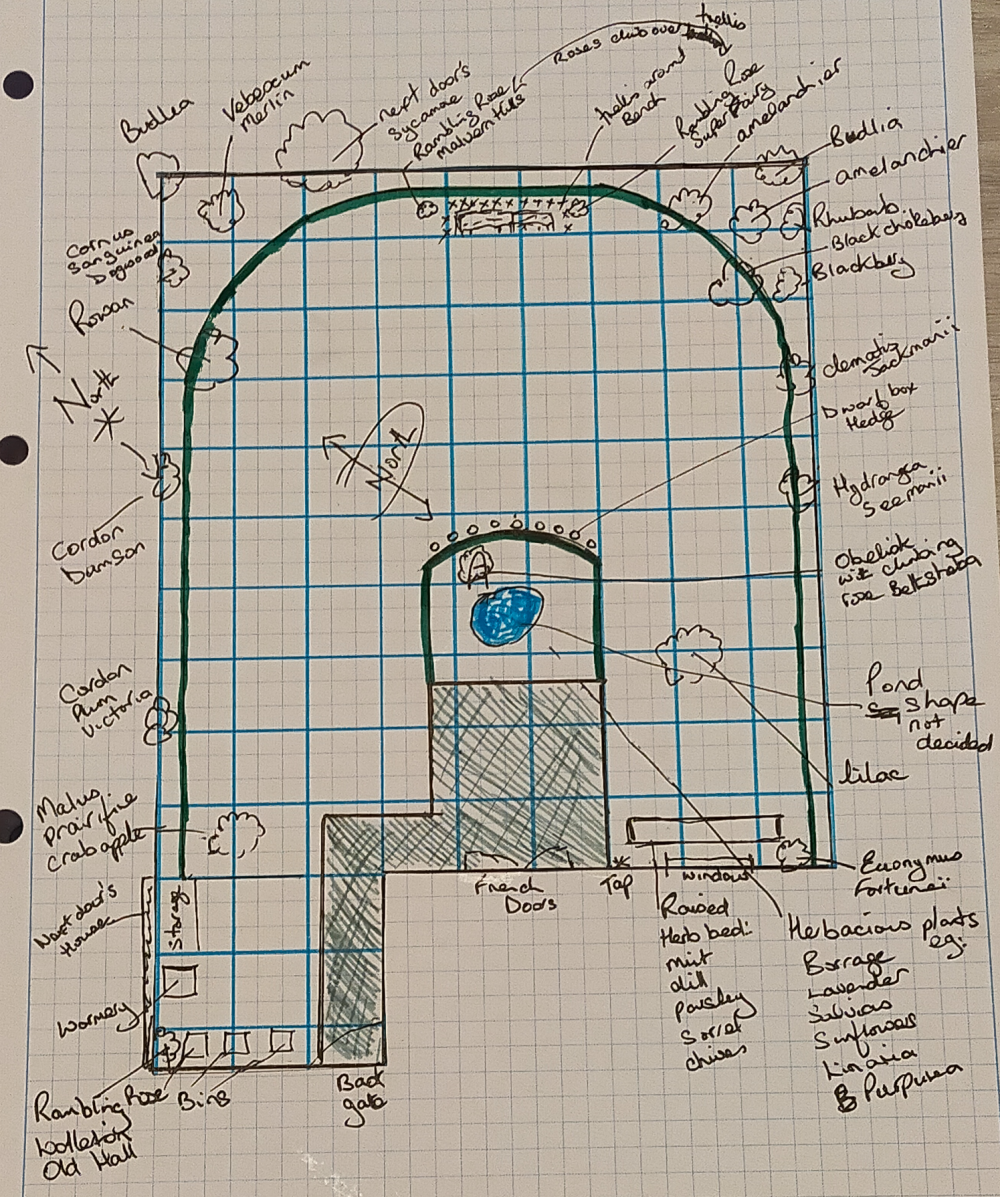 Budlea
Vebascum
Merlin
next door's
Sycamore
Rambling Rose
Malvern Hills
Roses climb over trellis
trellis around
Bench
Rambling Rose
Super Fairy
amelanchier
Budlia
amelanchier
Rhubarb
Black chokeberry
Blackberry
Cornus
Sanguinea
Dogwood
Rowan
North
clematis
Jackmanii
Dwarf box
Hedge
North
Hydrangea
Seemanii
Cordon
Damson
Obelisk
with climbing
rose
Cordon
Plum
Victoria
Pond
shape
not
decided
lilac
Malus
Prairifire
Crabapple
Euonymus
Fortuneii
Next door's
House
Storage
French
Doors
Tap
window
Raised
Herb bed:
mint
dill
Parsley
Sorrel
chives
Herbacious plants
eg:
Borrage
Lavender
Salvias
Sunflowers
Linaria
Purpurea
Wormery
Rambling Rose
Wollerton
Old Hall
Bins
Back
gate